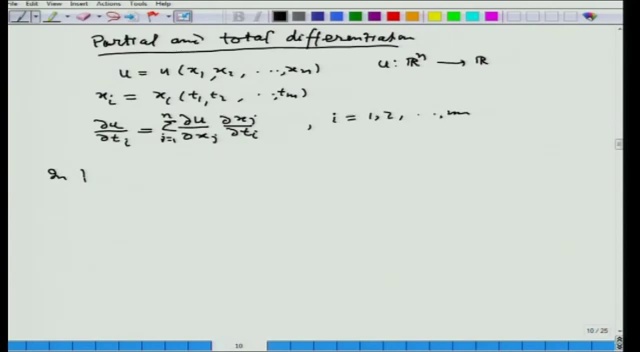 File Edit View Insert Actions Tools Help
Partial and total differentiation
u = u (x₁, x₂, ..., xₙ) u: ℝⁿ → ℝ
xᵢ = xᵢ (t₁, t₂, ..., tₘ)
∂u/∂tᵢ = Σⁿᵢ₌₁ ∂u/∂xⱼ ∂xⱼ/∂tᵢ , i = 1, 2, ..., m
In
10 / 25
10